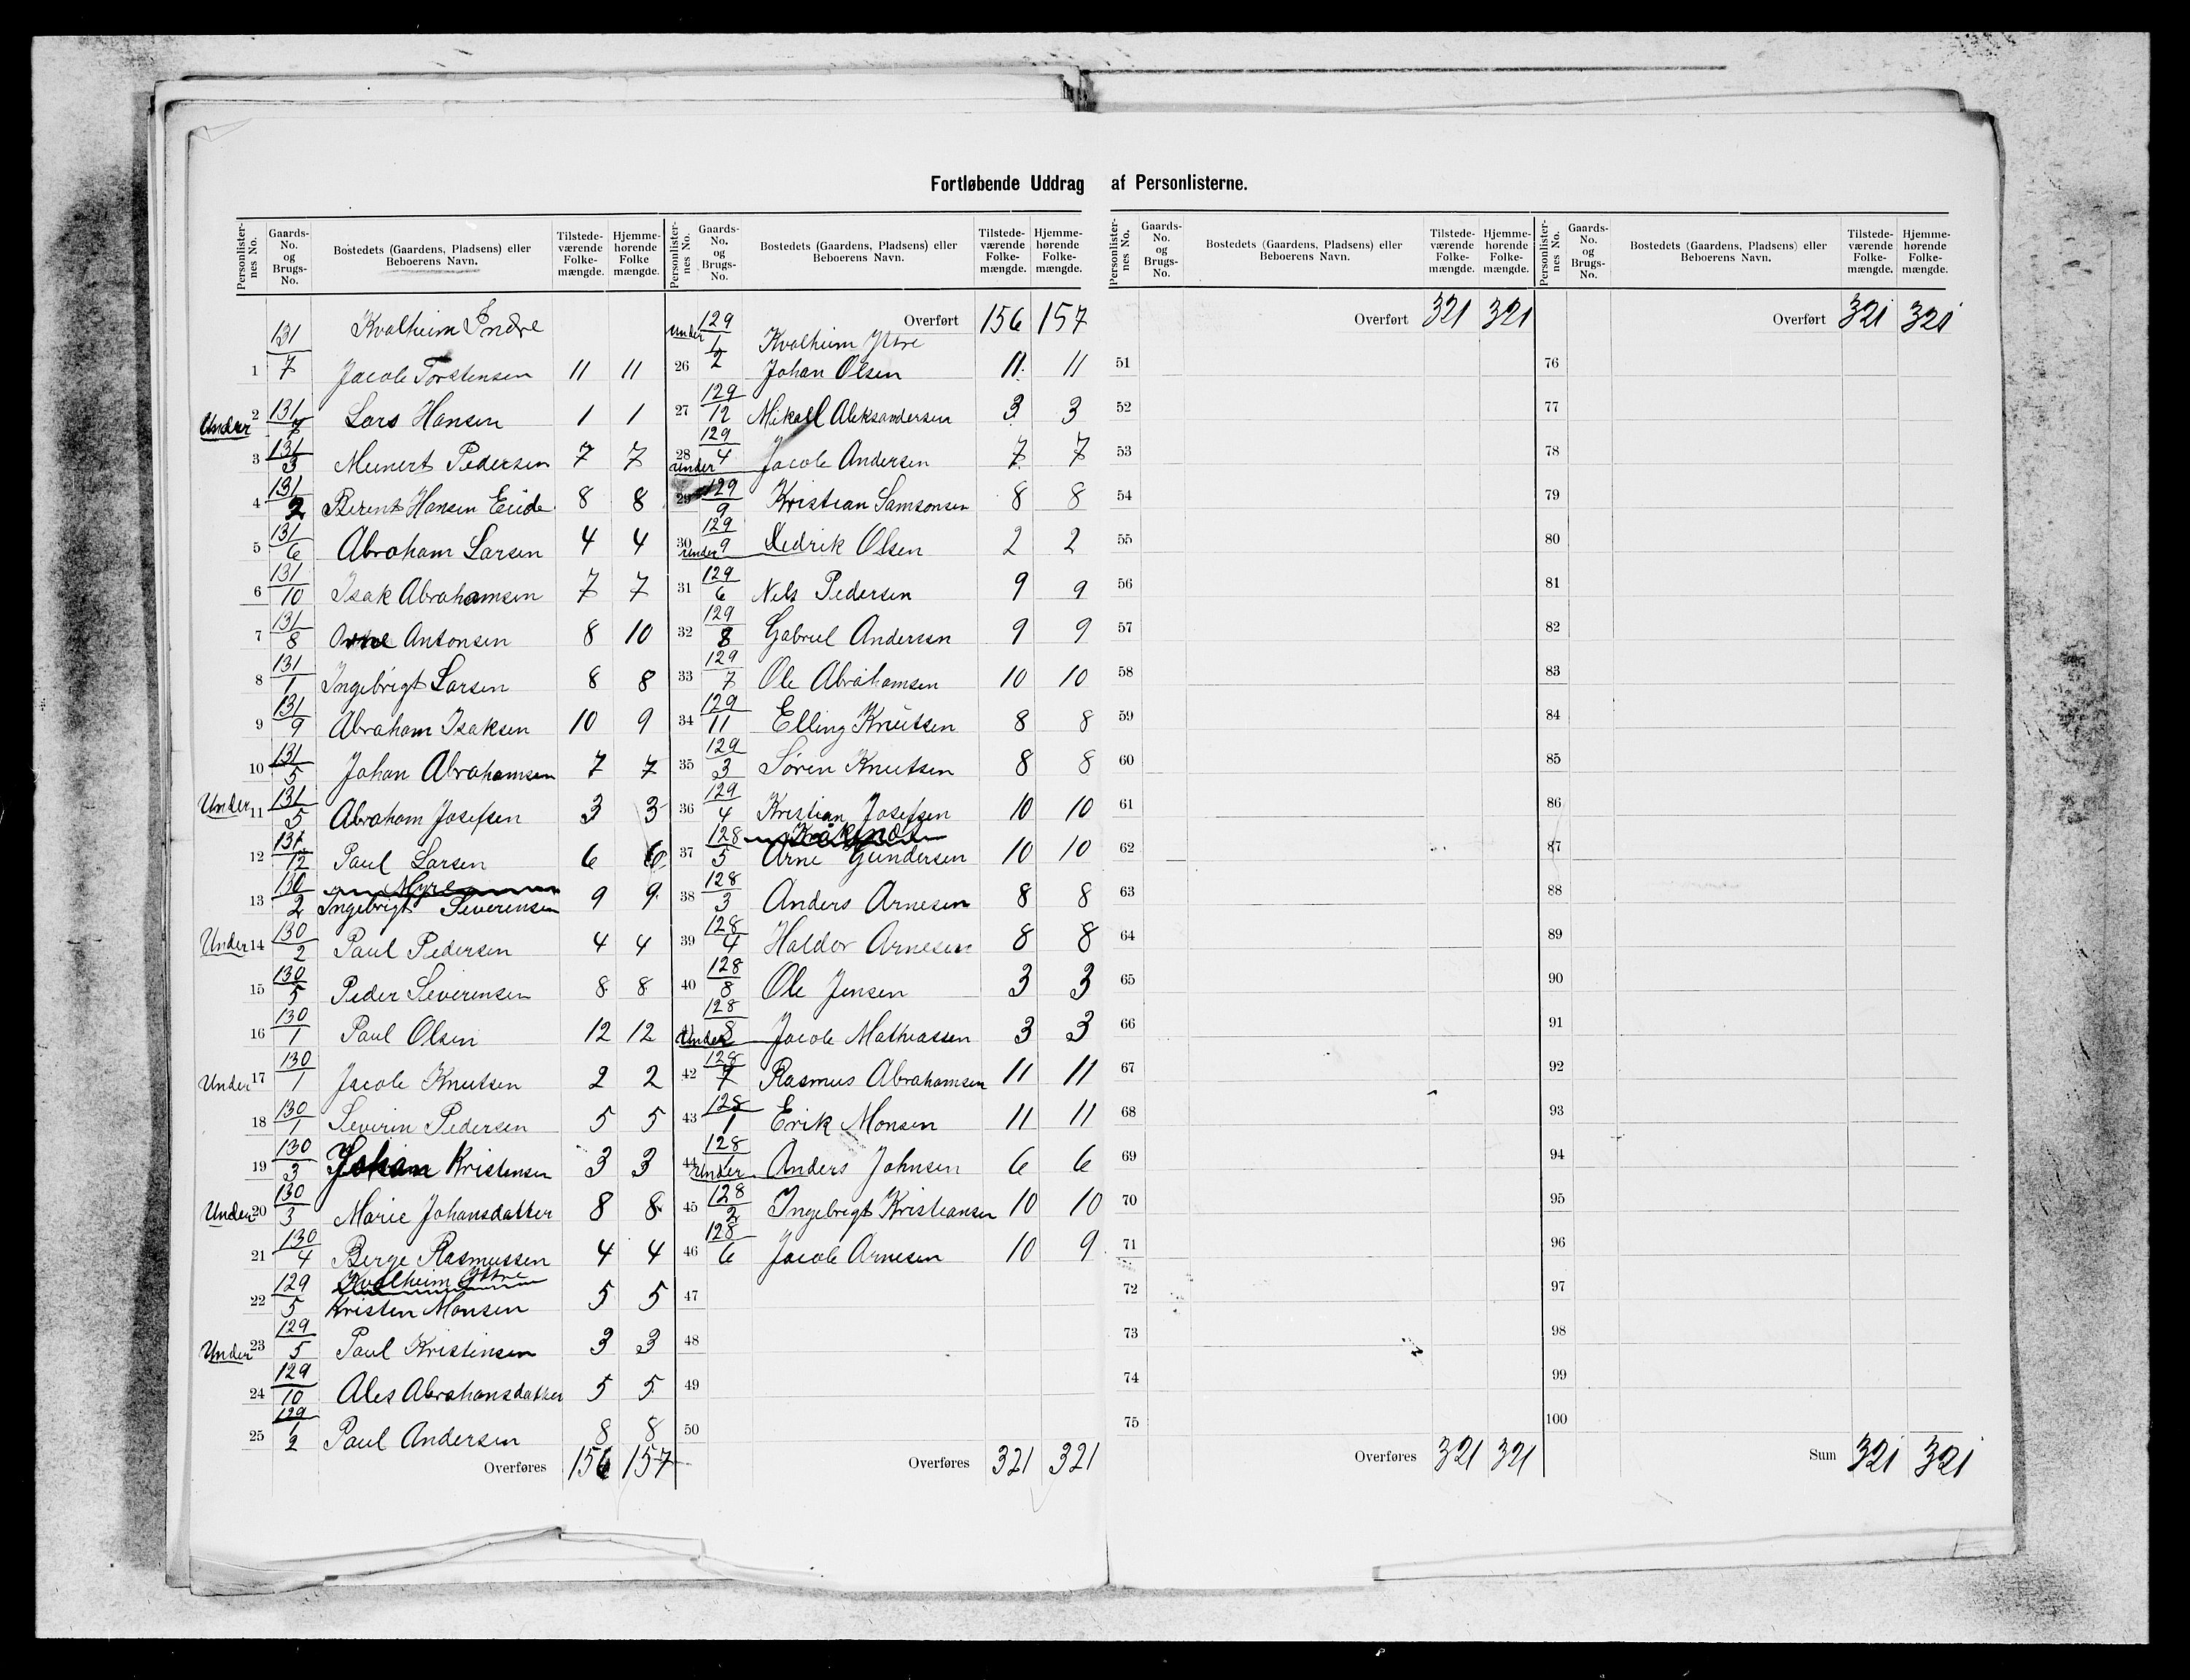 Fortløbende Uddrag af Personlisterne.
Personlister-nes No. | Gaards-No. og Brugs-No. | Bostedets (Gaardens, Pladsens) eller Beboerens Navn. | Tilstede-værende Folke-mængde. | Hjemme-hørende Folke mængde.
131 Kvalheim Indre
1 7 Jacob Torstensen 11 11
Under 2 131/7 Lars Hansen 1 1
3 131/3 Meinert Pedersen 7 7
4 131/2 Berent Hansen Eide 8 8
5 131/6 Abraham Larsen 4 4
6 131/10 Isak Abrahamsen 7 7
7 131/8 Antonsen 8 10
8 131/1 Ingebrigt Larsen 8 8
9 131/9 Abraham Isaksen 10 9
10 131/5 Johan Abrahamsen 7 7
Under 11 131/5 Abraham Josefsen 3 3
12 131/12 Paul Larsen 6 6
Myre
13 130/2 Ingebrigt Severensen 9 9
Under 14 130/2 Paul Pedersen 4 4
15 130/5 Peder Severensen 8 8
16 130/1 Paul Olsen 12 12
Under 17 130/1 Jacob Knutsen 2 2
18 130/1 Severin Pedersen 5 5
19 130/3 Johan Kristensen 3 3
Under 20 130/3 Marie Johansdatter 8 8
21 130/4 Berge Rasmussen 4 4
Kvalheim Ytre
22 129/5 Kristen Monsen 5 5
Under 23 129/5 Paul Kristensen 3 3
24 129/10 Ales Abrahamsdatter 5 5
25 129/1 2 Paul Andersen 8 8
Overføres 156 157
Personlister-nes No. | Gaards-No. og Brugs-No. | Bostedets (Gaardens, Pladsens) eller Beboerens Navn. | Tilstede-værende Folke-mængde. | Hjemme-hørende Folke-mængde.
Overført 156 157
Under 129/1 2 Kvalheim Ytre
26 Johan Olsen 11 11
27 129/12 Mikall Aleksandersen 3 3
28 under 129/4 Jacob Andersen 7 7
29 129/9 Kristian Samsonsen 8 8
30 under 129/9 Didrik Olsen 2 2
31 129/6 Nels Pedersen 9 9
32 129/8 Gabriel Andersen 9 9
33 129/7 Ole Abrahamsen 10 10
34 129/11 Elling Knutsen 8 8
35 129/3 Søren Knutsen 8 8
36 129/4 Kristian Josefsen 10 10
Kråkenes
37 128/5 Arne Gundersen 10 10
38 128/3 Anders Arnesen 8 8
39 128/4 Haldor Arnesen 8 8
40 128/8 Ole Jensen 3 3
41 Under 128/8 Jacob Mathiassen 3 3
42 128/7 Rasmus Abrahamsen 11 11
43 128/1 Erik Monsen 11 11
44 Under 128/1 Anders Johnsen 6 6
45 128/2 Ingebrigt Kristiansen 10 10
46 128/6 Jacob Arnesen 10 9
47
48
49
50
Overføres 321 321
Personlister-nes No. | Gaards-No. og Brugs-No. | Bostedets (Gaardens, Pladsens) eller Beboerens Navn. | Tilstede-værende Folke-mængde. | Hjemme-hørende Folke-mængde.
Overført 321 321
51
52
53
54
55
56
57
58
59
60
61
62
63
64
65
66
67
68
69
70
71
72
73
74
75
Overføres 321 321
Personlister-nes No. | Gaards-No. og Brugs-No. | Bostedets (Gaardens, Pladsens) eller Beboerens Navn. | Tilstede-værende Folke-mængde. | Hjemme-hørende Folke-mængde.
Overført 321 321
76
77
78
79
80
81
82
83
84
85
86
87
88
89
90
91
92
93
94
95
96
97
98
99
100
Sum 321 321